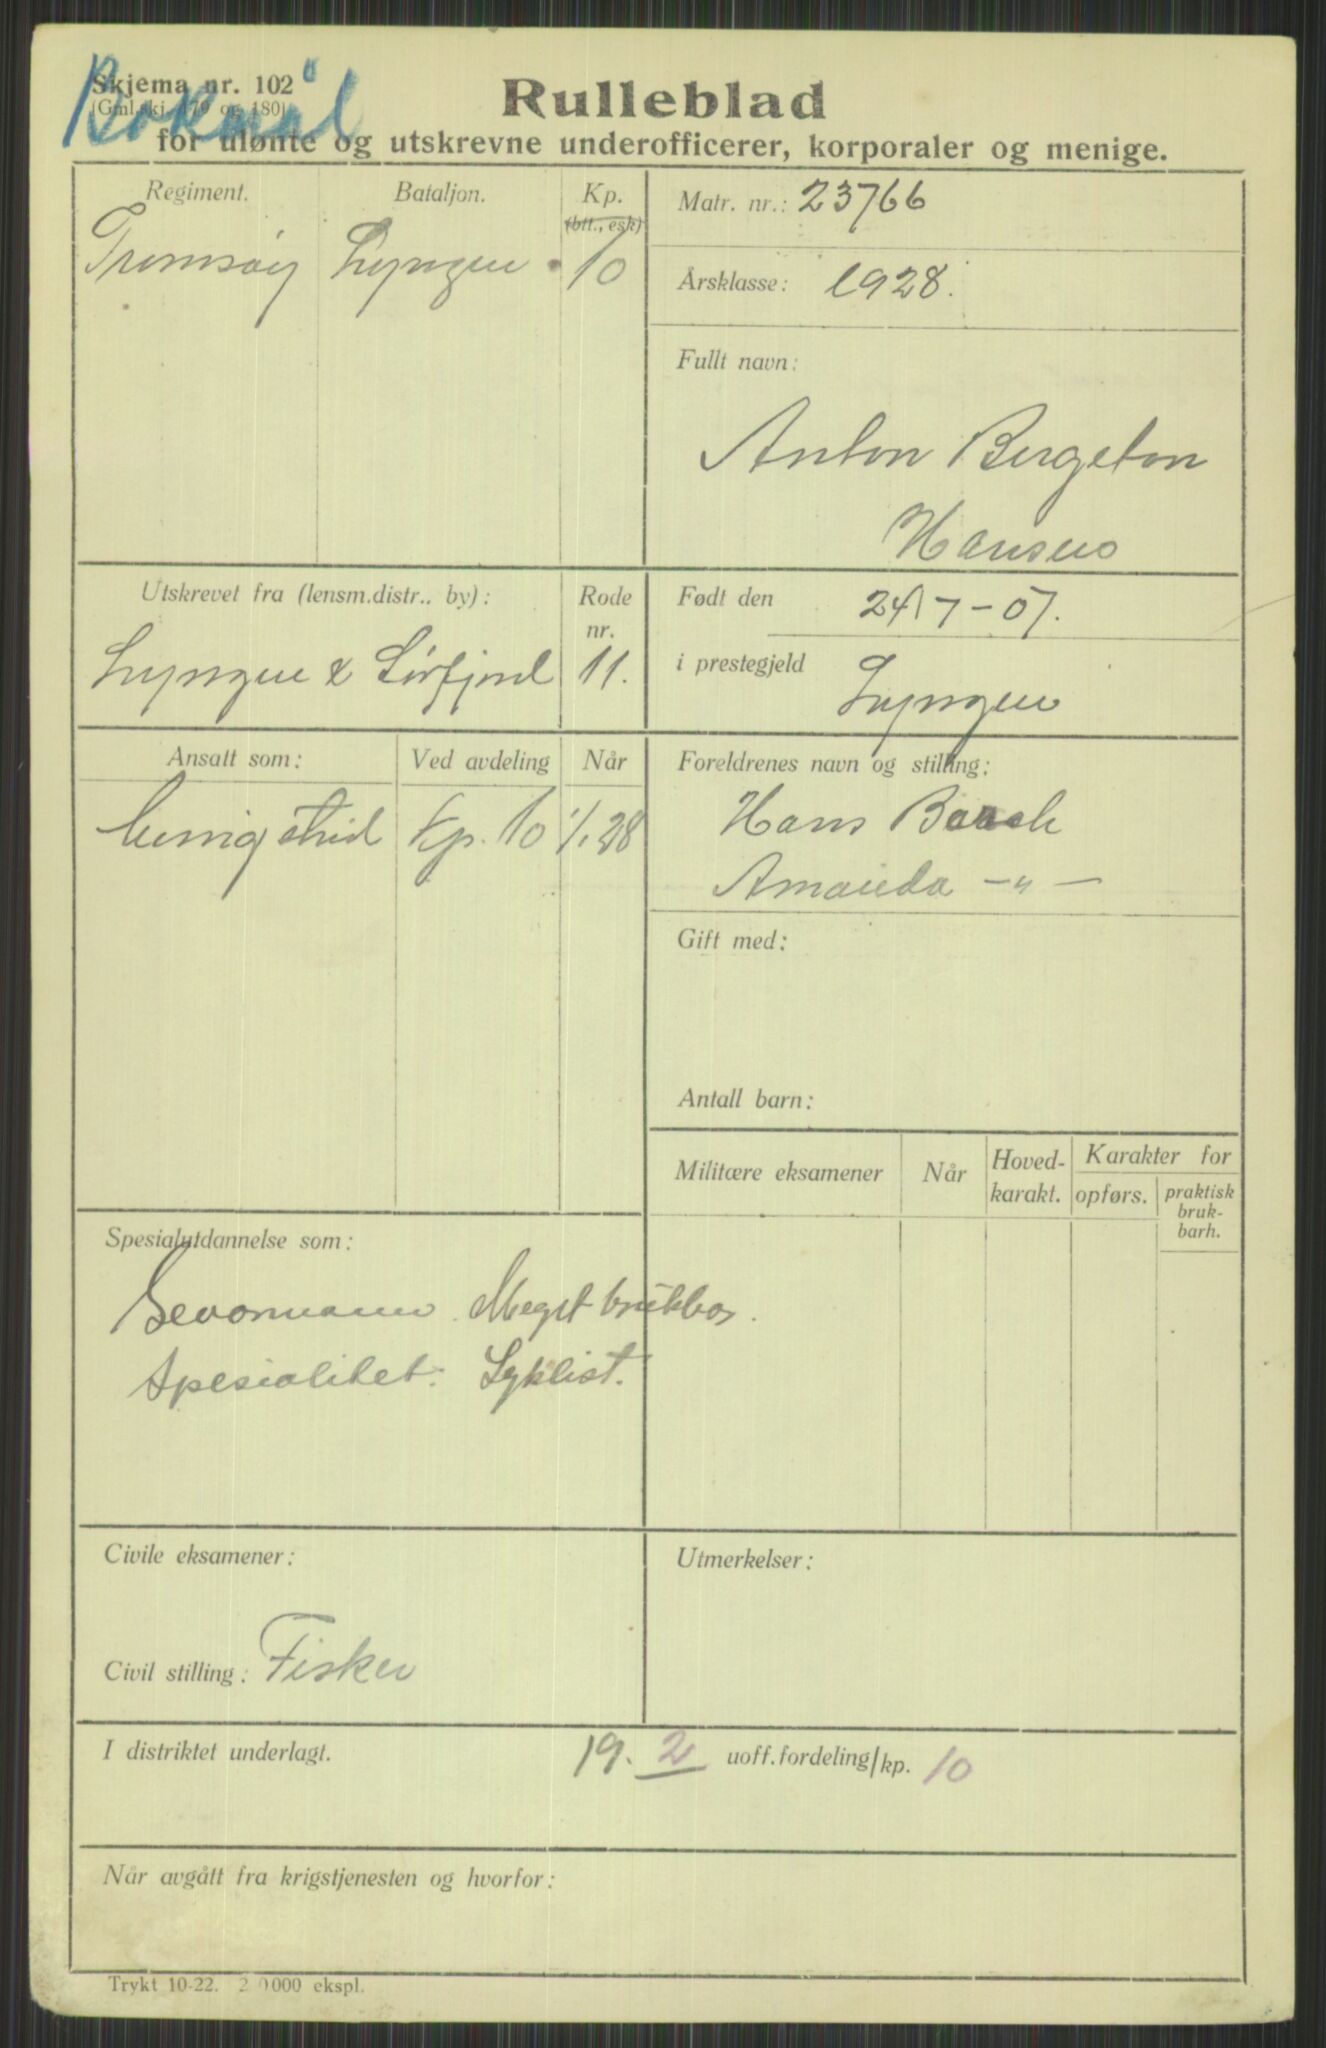 Bokmål
Skjema nr. 102
(Gml. skj. 179 og 180)
Rulleblad
for ulønte og utskrevne underofficerer, korporaler og menige.
Regiment. Bataljon. Kp.
(btt., esk)
Lyngen 10
Matr. nr.: 23766
Årsklasse: 1928.
Fullt navn:
Anton Bergeton
Hansen
Utskrevet fra (lensm.distr.. by): Rode
nr.
Lyngen & Sørfjord 11.
Født den 24/7-07.
i prestegjeld Lyngen
Ansatt som: Ved avdeling Når
Kp. 10 1/1 28
Foreldrenes navn og stilling:
Hans
Amanda -"-
Gift med:
Antall barn:
Militære eksamener Når Hoved-
karakt. Karakter for
opførs. praktisk
bruk-
barh.
Spesialutdannelse som:
Geværmann. Meget brukbar.
Spesialitet: Syklist.
Civile eksamener:
Civil stilling: Fisker
Utmerkelser:
I distriktet underlagt. 19. 2 uoff.fordeling/kp. 10
Når avgått fra krigstjenesten og hvorfor:
Trykt 10-22. 2 0000 ekspl.